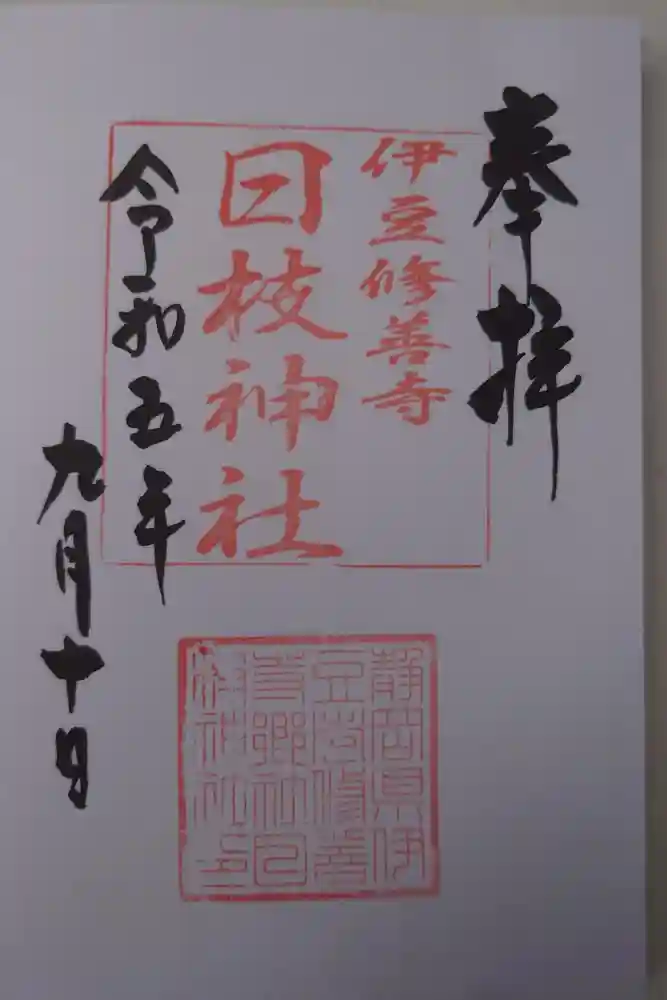 奉拝
伊豆修善寺
日枝神社
令和五年
九月十日
静岡県伊
豆市修善
寺郷社日
枝神社印